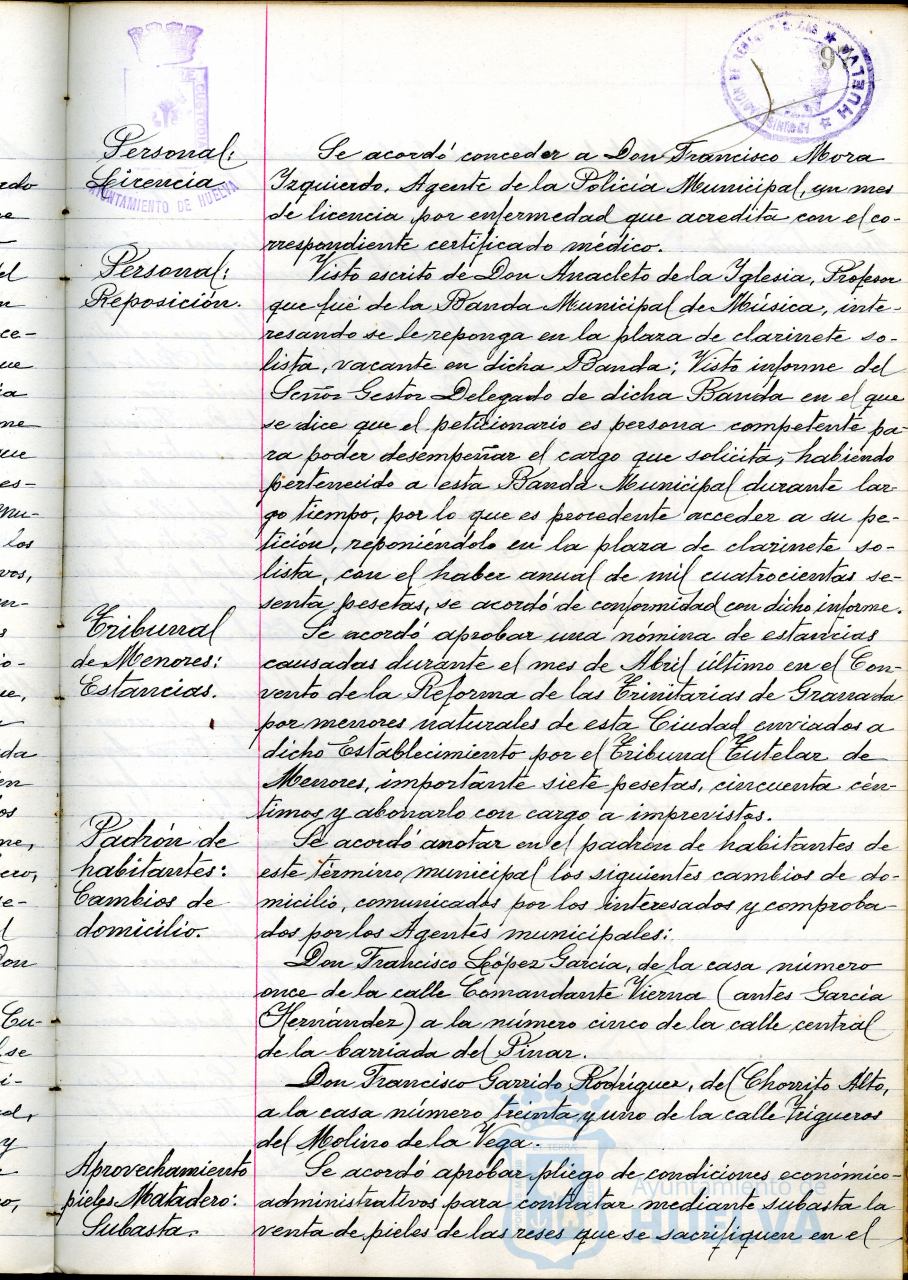 97
HUELVA
AYUNTAMIENTO DE HUELVA
Personal:
Licencia
Se acordó conceder a Don Francisco Mora
Izquierdo, Agente de la Policía Municipal, un mes
de licencia por enfermedad que acredita con el co-
rrespondiente certificado médico.
Personal:
Reposición.
Visto escrito de Don Anacleto de la Iglesia, Profesor
que fué de la Banda Municipal de Música, inte-
resando se le reponga en la plaza de clarinete so-
lista, vacante en dicha Banda; Visto informe del
Señor Gestor Delegado de dicha Banda en el que
se dice que el peticionario es persona competente pa-
ra poder desempeñar el cargo que solicita, habiendo
pertenecido a esta Banda Municipal durante lar-
go tiempo, por lo que es procedente acceder a su pe-
tición, reponiéndolo en la plaza de clarinete so-
lista, con el haber anual de mil cuatrocientas se-
senta pesetas, se acordó de conformidad con dicho informe.
Tribunal
de Menores:
Estancias.
Se acordó aprobar una nómina de estancias
causadas durante el mes de Abril último en el Con-
vento de la Reforma de las Trinitarias de Granada
por menores naturales de esta Ciudad enviados a
dicho Establecimiento por el Tribunal Tutelar de
Menores, importante siete pesetas, cincuenta cén-
timos y abonarlo con cargo a imprevistos.
Padrón de
habitantes:
Cambios de
domicilio.
Se acordó anotar en el padrón de habitantes de
este término municipal los siguientes cambios de do-
micilio, comunicados por los interesados y comproba-
dos por los Agentes municipales:
Don Francisco López García, de la casa número
once de la calle Comandante Vierna (antes García
Hernández) a la número cinco de la calle central
de la barriada del Pinar.
Don Francisco Garrido Rodríguez, del Chorrito Alto,
a la casa número treinta y uno de la calle Trigueros
del Molino de la Vega.
Aprovechamiento
pieles Matadero:
Subasta.
Se acordó aprobar pliego de condiciones económico-
administrativas para contratar mediante subasta la
venta de pieles de las reses que se sacrifiquen en el
Ayuntamiento de
HUELVA